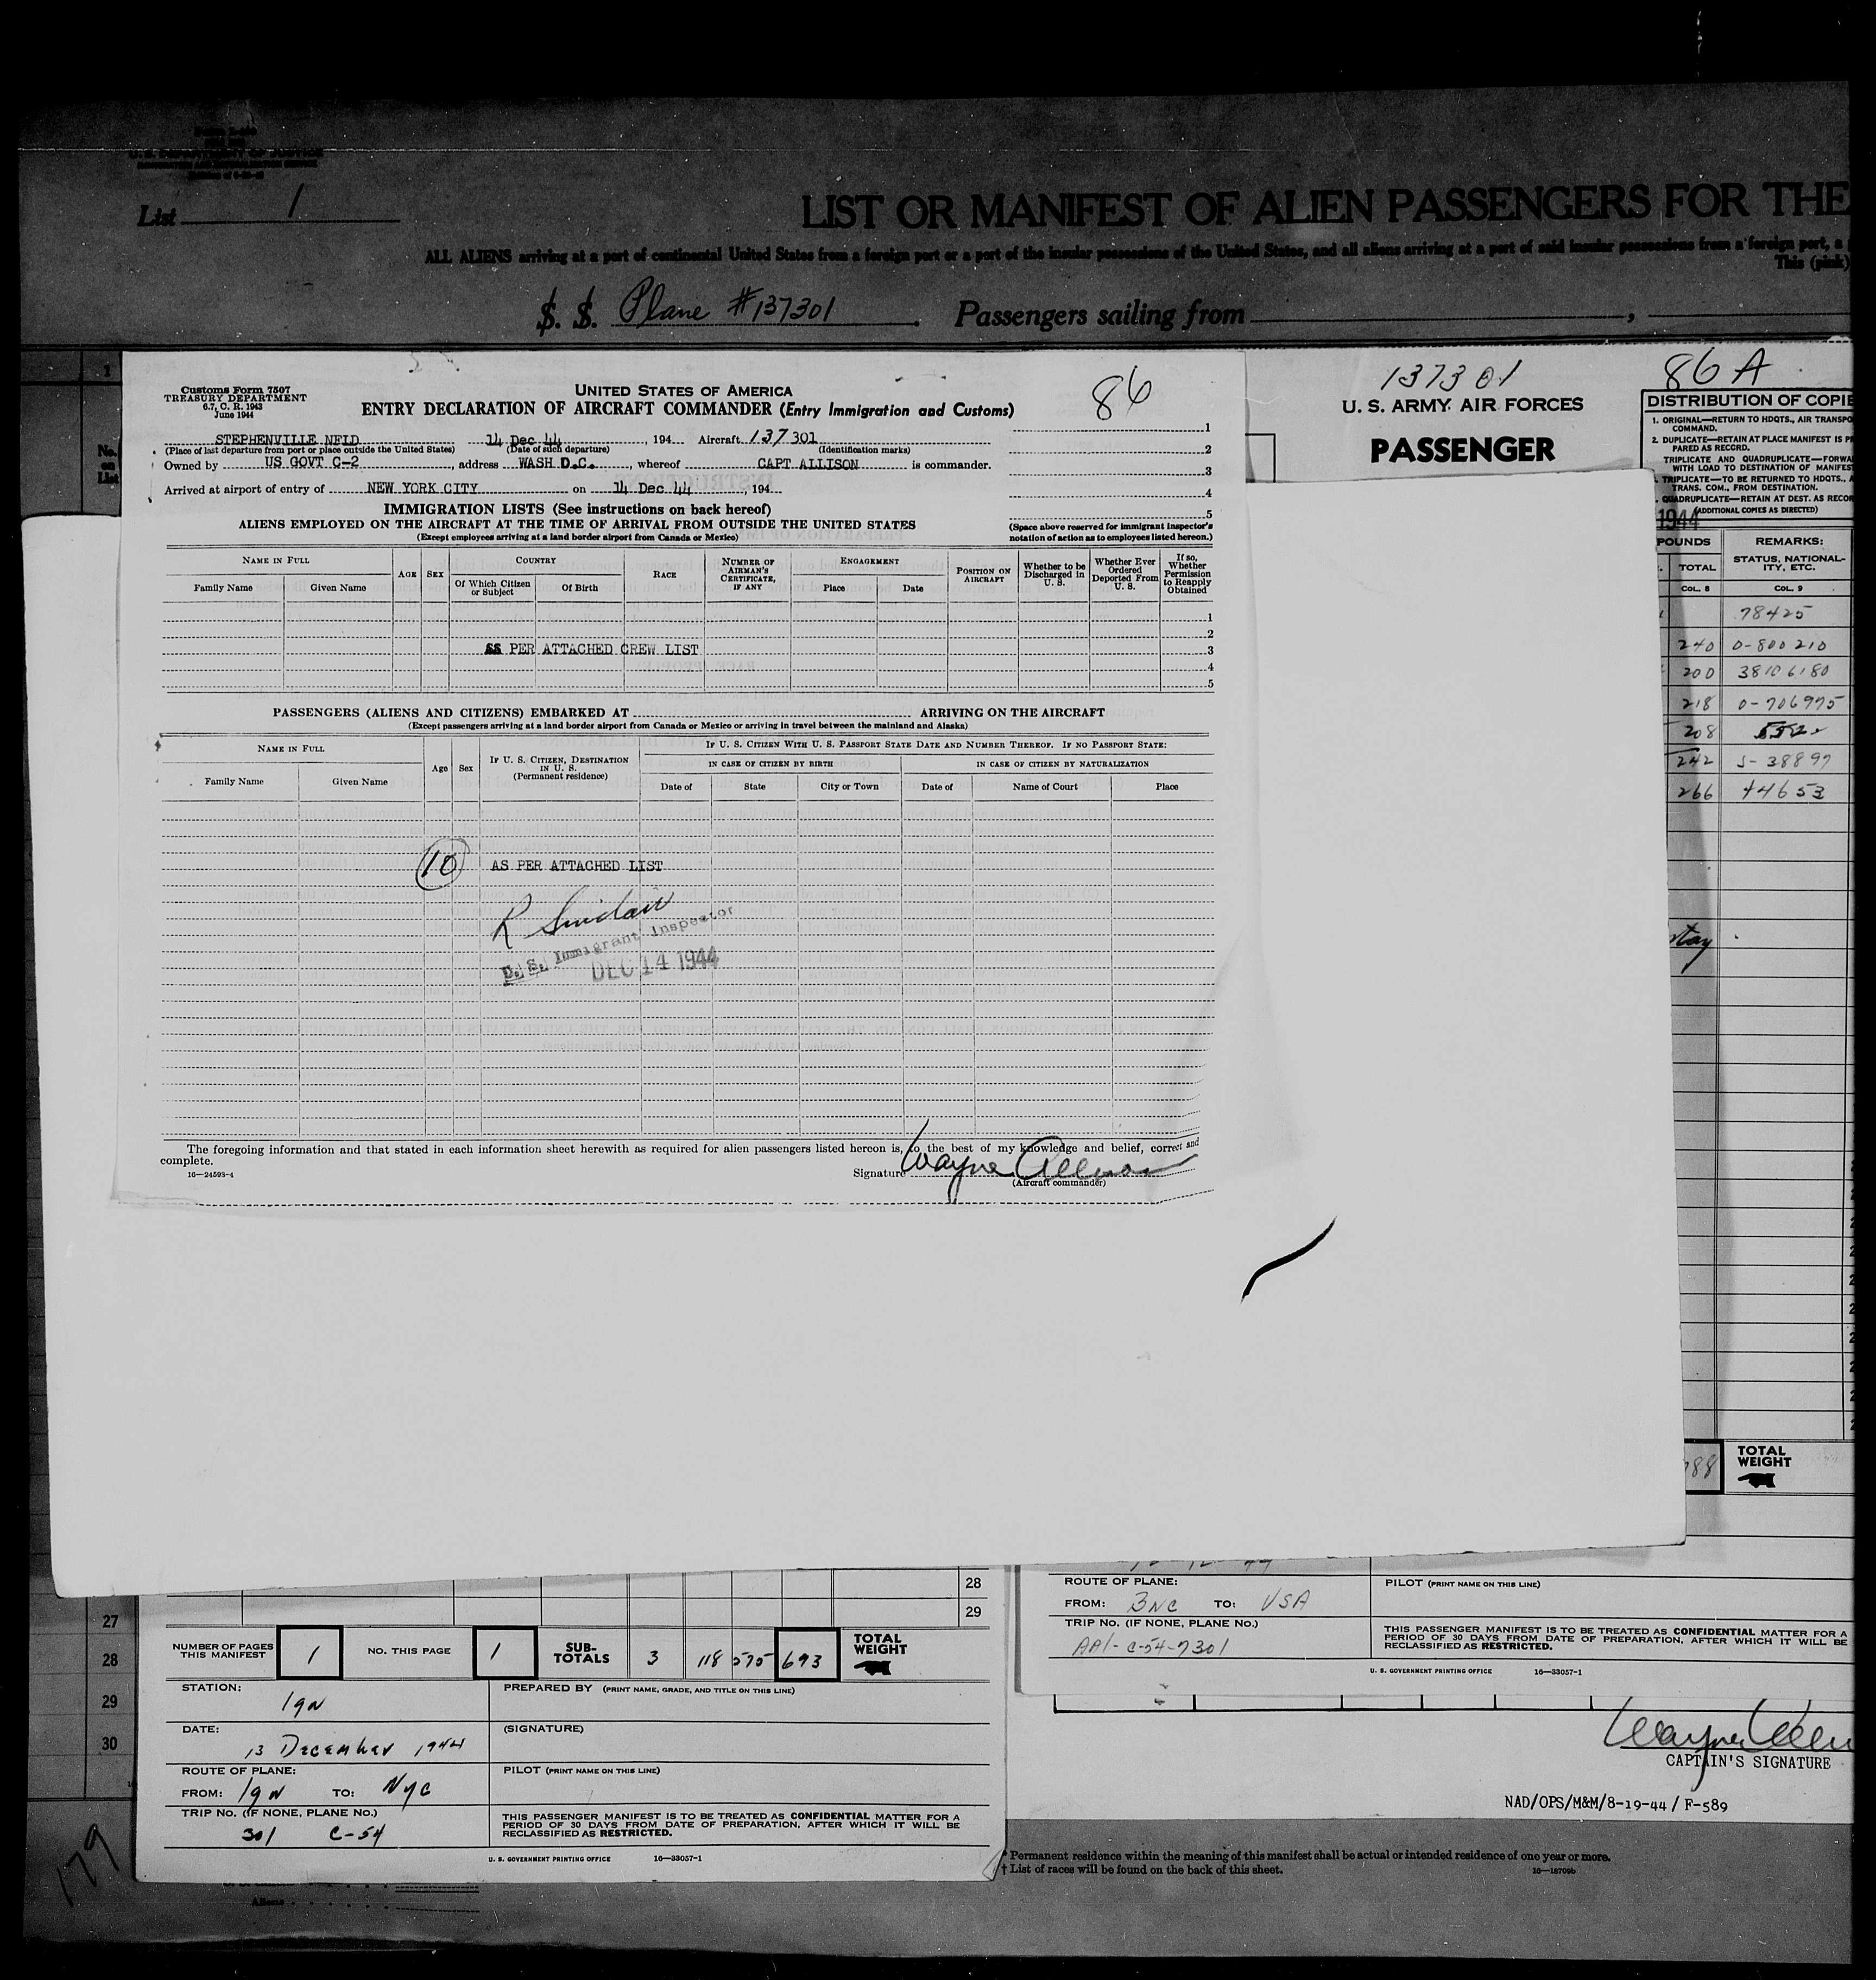 U.S. DEPARTMENT OF JUSTICE
List 1
LIST OR MANIFEST OF ALIEN PASSENGERS FOR THE
ALL ALIENS arriving at a port of continental United States from a foreign port or a port of the insular possessions of the United States, and all aliens arriving at a port of said insular possessions from a foreign port, a
This (pink)
S. S. Plane #137301 Passengers sailing from
1
No. on List
Customs Form 7507
TREASURY DEPARTMENT
6.7, C. R. 1943
June 1944
UNITED STATES OF AMERICA
ENTRY DECLARATION OF AIRCRAFT COMMANDER (Entry Immigration and Customs)
86
STEPHENVILLE NFLD 14 Dec 44, 194 Aircraft 137301
(Place of last departure from port or place outside the United States) (Date of such departure) (Identification marks)
Owned by US GOVT C-2, address WASH D.C., whereof CAPT ALLISON is commander.
Arrived at airport of entry of NEW YORK CITY on 14 Dec 44, 194
1
2
3
4
5
IMMIGRATION LISTS (See instructions on back hereof)
ALIENS EMPLOYED ON THE AIRCRAFT AT THE TIME OF ARRIVAL FROM OUTSIDE THE UNITED STATES
(Except employees arriving at a land border airport from Canada or Mexico)
(Space above reserved for immigrant inspector's notation of action as to employees listed hereon.)
NAME IN FULL
Family Name Given Name
AGE
SEX
COUNTRY
Of Which Citizen or Subject
Of Birth
RACE
NUMBER OF AIRMAN'S CERTIFICATE, IF ANY
ENGAGEMENT
Place Date
POSITION ON AIRCRAFT
Whether to be Discharged in U. S.
Whether Ever Ordered Deported From U. S.
If so, Whether Permission to Reapply Obtained
1
2
AS PER ATTACHED CREW LIST 3
4
5
PASSENGERS (ALIENS AND CITIZENS) EMBARKED AT ARRIVING ON THE AIRCRAFT
(Except passengers arriving at a land border airport from Canada or Mexico or arriving in travel between the mainland and Alaska)
NAME IN FULL
Family Name Given Name
Age
Sex
IF U. S. CITIZEN, DESTINATION IN U. S.
(Permanent residence)
IF U. S. CITIZEN WITH U. S. PASSPORT STATE DATE AND NUMBER THEREOF. IF NO PASSPORT STATE:
IN CASE OF CITIZEN BY BIRTH
IN CASE OF CITIZEN BY NATURALIZATION
Date of State City or Town Date of Name of Court Place
10 AS PER ATTACHED LIST
R Sinclair
U. S. Immigrant Inspector
DEC 14 1944
The foregoing information and that stated in each information sheet herewith as required for alien passengers listed hereon is, to the best of my knowledge and belief, correct and
complete.
16—24593-4
Signature Wayne Allison
(Aircraft commander)
137301
86 A
U. S. ARMY AIR FORCES
PASSENGER
DISTRIBUTION OF COPIE
1. ORIGINAL—RETURN TO HDQTS., AIR TRANSPO
COMMAND.
2. DUPLICATE—RETAIN AT PLACE MANIFEST IS P
PARED AS RECORD.
TRIPLICATE AND QUADRUPLICATE—FORWA
WITH LOAD TO DESTINATION OF MANIFES
TRIPLICATE—TO BE RETURNED TO HDQTS., A
TRANS. COM., FROM DESTINATION.
QUADRUPLICATE—RETAIN AT DEST. AS RECOR
(ADDITIONAL COPIES AS DIRECTED)
1944
POUNDS
REMARKS:
TOTAL
STATUS, NATIONAL-
ITY, ETC.
COL. 8 COL. 9
78425
240 0-800210
200 38106180
218 0-706975
208
242 S-38897
266 44653
788 TOTAL WEIGHT
27
28
29
30
28
29
NUMBER OF PAGES THIS MANIFEST 1 NO. THIS PAGE 1 SUB-TOTALS 3 118 575 693 TOTAL WEIGHT
STATION: 19N
PREPARED BY (PRINT NAME, GRADE, AND TITLE ON THIS LINE)
DATE: 13 December 1944
(SIGNATURE)
ROUTE OF PLANE:
FROM: 19N TO: NYC
PILOT (PRINT NAME ON THIS LINE)
TRIP No. (IF NONE, PLANE NO.)
301 C-54
THIS PASSENGER MANIFEST IS TO BE TREATED AS CONFIDENTIAL MATTER FOR A
PERIOD OF 30 DAYS FROM DATE OF PREPARATION, AFTER WHICH IT WILL BE
RECLASSIFIED AS RESTRICTED.
U. S. GOVERNMENT PRINTING OFFICE 16—33057-1
ROUTE OF PLANE:
FROM: BNC TO: USA
PILOT (PRINT NAME ON THIS LINE)
TRIP No. (IF NONE, PLANE NO.)
AA1-C-54-7301
THIS PASSENGER MANIFEST IS TO BE TREATED AS CONFIDENTIAL MATTER FOR A
PERIOD OF 30 DAYS FROM DATE OF PREPARATION, AFTER WHICH IT WILL BE
RECLASSIFIED AS RESTRICTED.
U. S. GOVERNMENT PRINTING OFFICE 16—33057-1
CAPTAIN'S SIGNATURE
NAD/OPS/M&M/8-19-44/ F-589
* Permanent residence within the meaning of this manifest shall be actual or intended residence of one year or more.
† List of races will be found on the back of this sheet.
16—18709b
179
Aliens